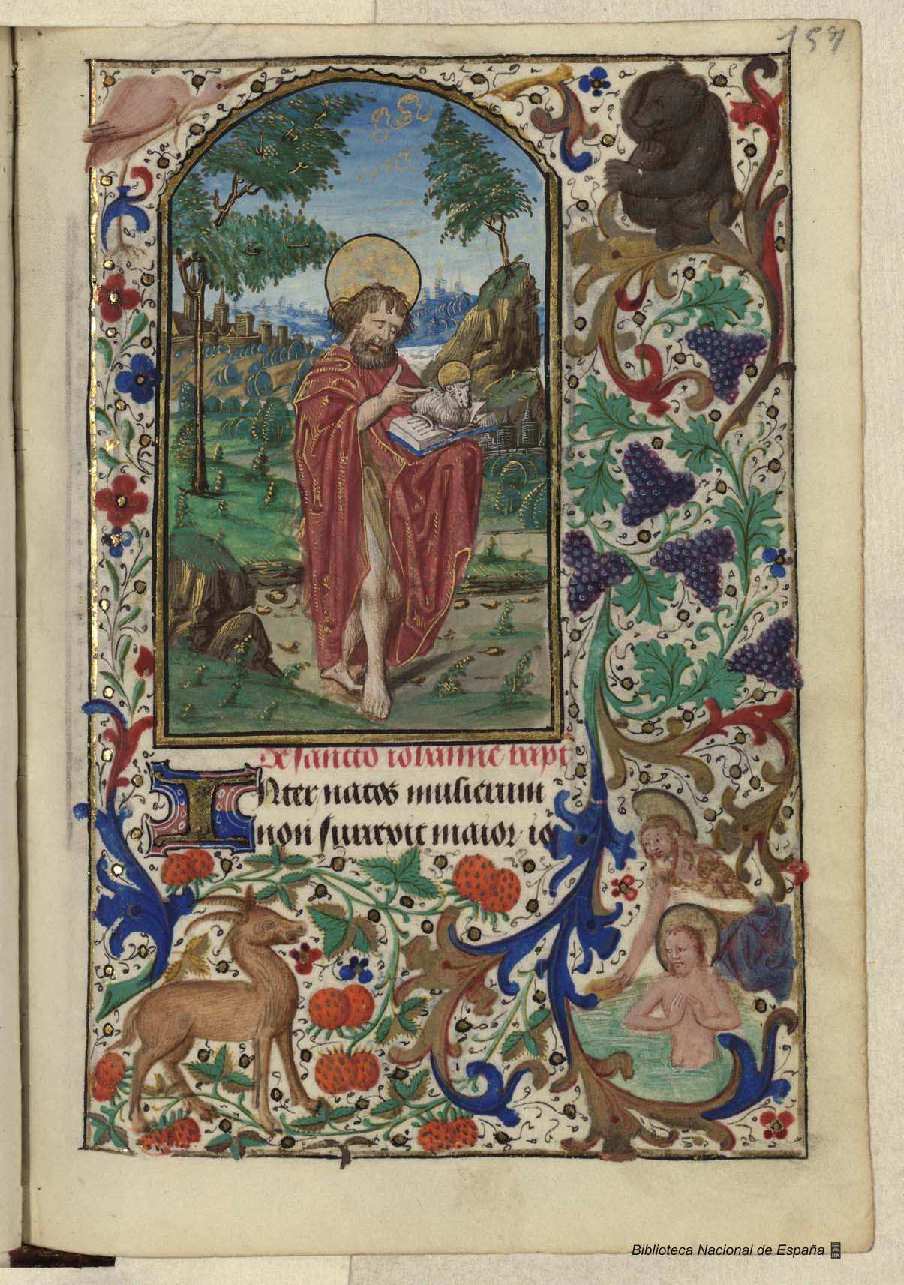 159
De sancto iohanne bapt
Inter natos mulierum
non surrexit maior io
Biblioteca Nacional de España